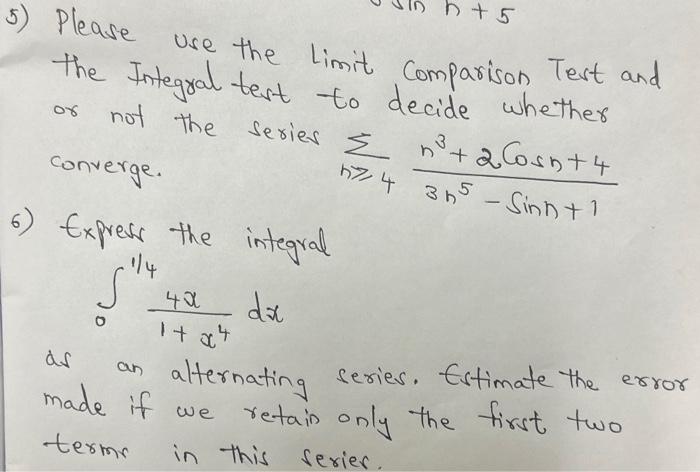 sin n + 5
5) Please use the Limit Comparison Test and
the Integral test to decide whether
or not the series ∑ n≥4 (n³ + 2Cosn + 4)/(3n⁵ - Sinn + 1)
converge.
6) Express the integral
∫₀^1/4 4x/(1 + x⁴) dx
as an alternating series. Estimate the error
made if we retain only the first two
terms in this series.